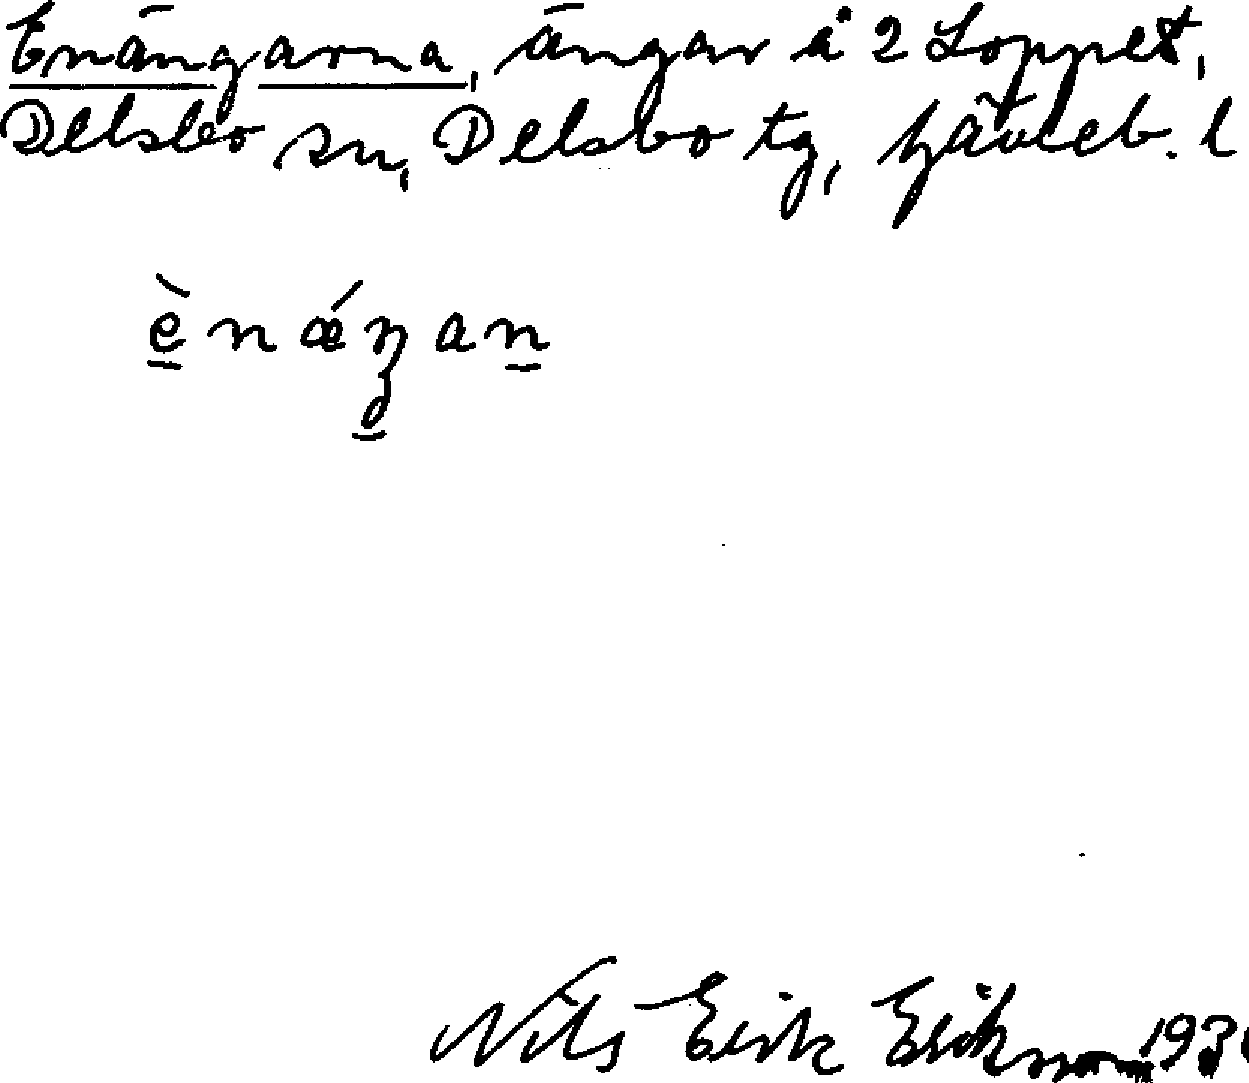 Enängarna, ängar i 2 Loppet,
Delsbo sn, Delsbo tg, Gävleb. l
Nils Erik Eriksson